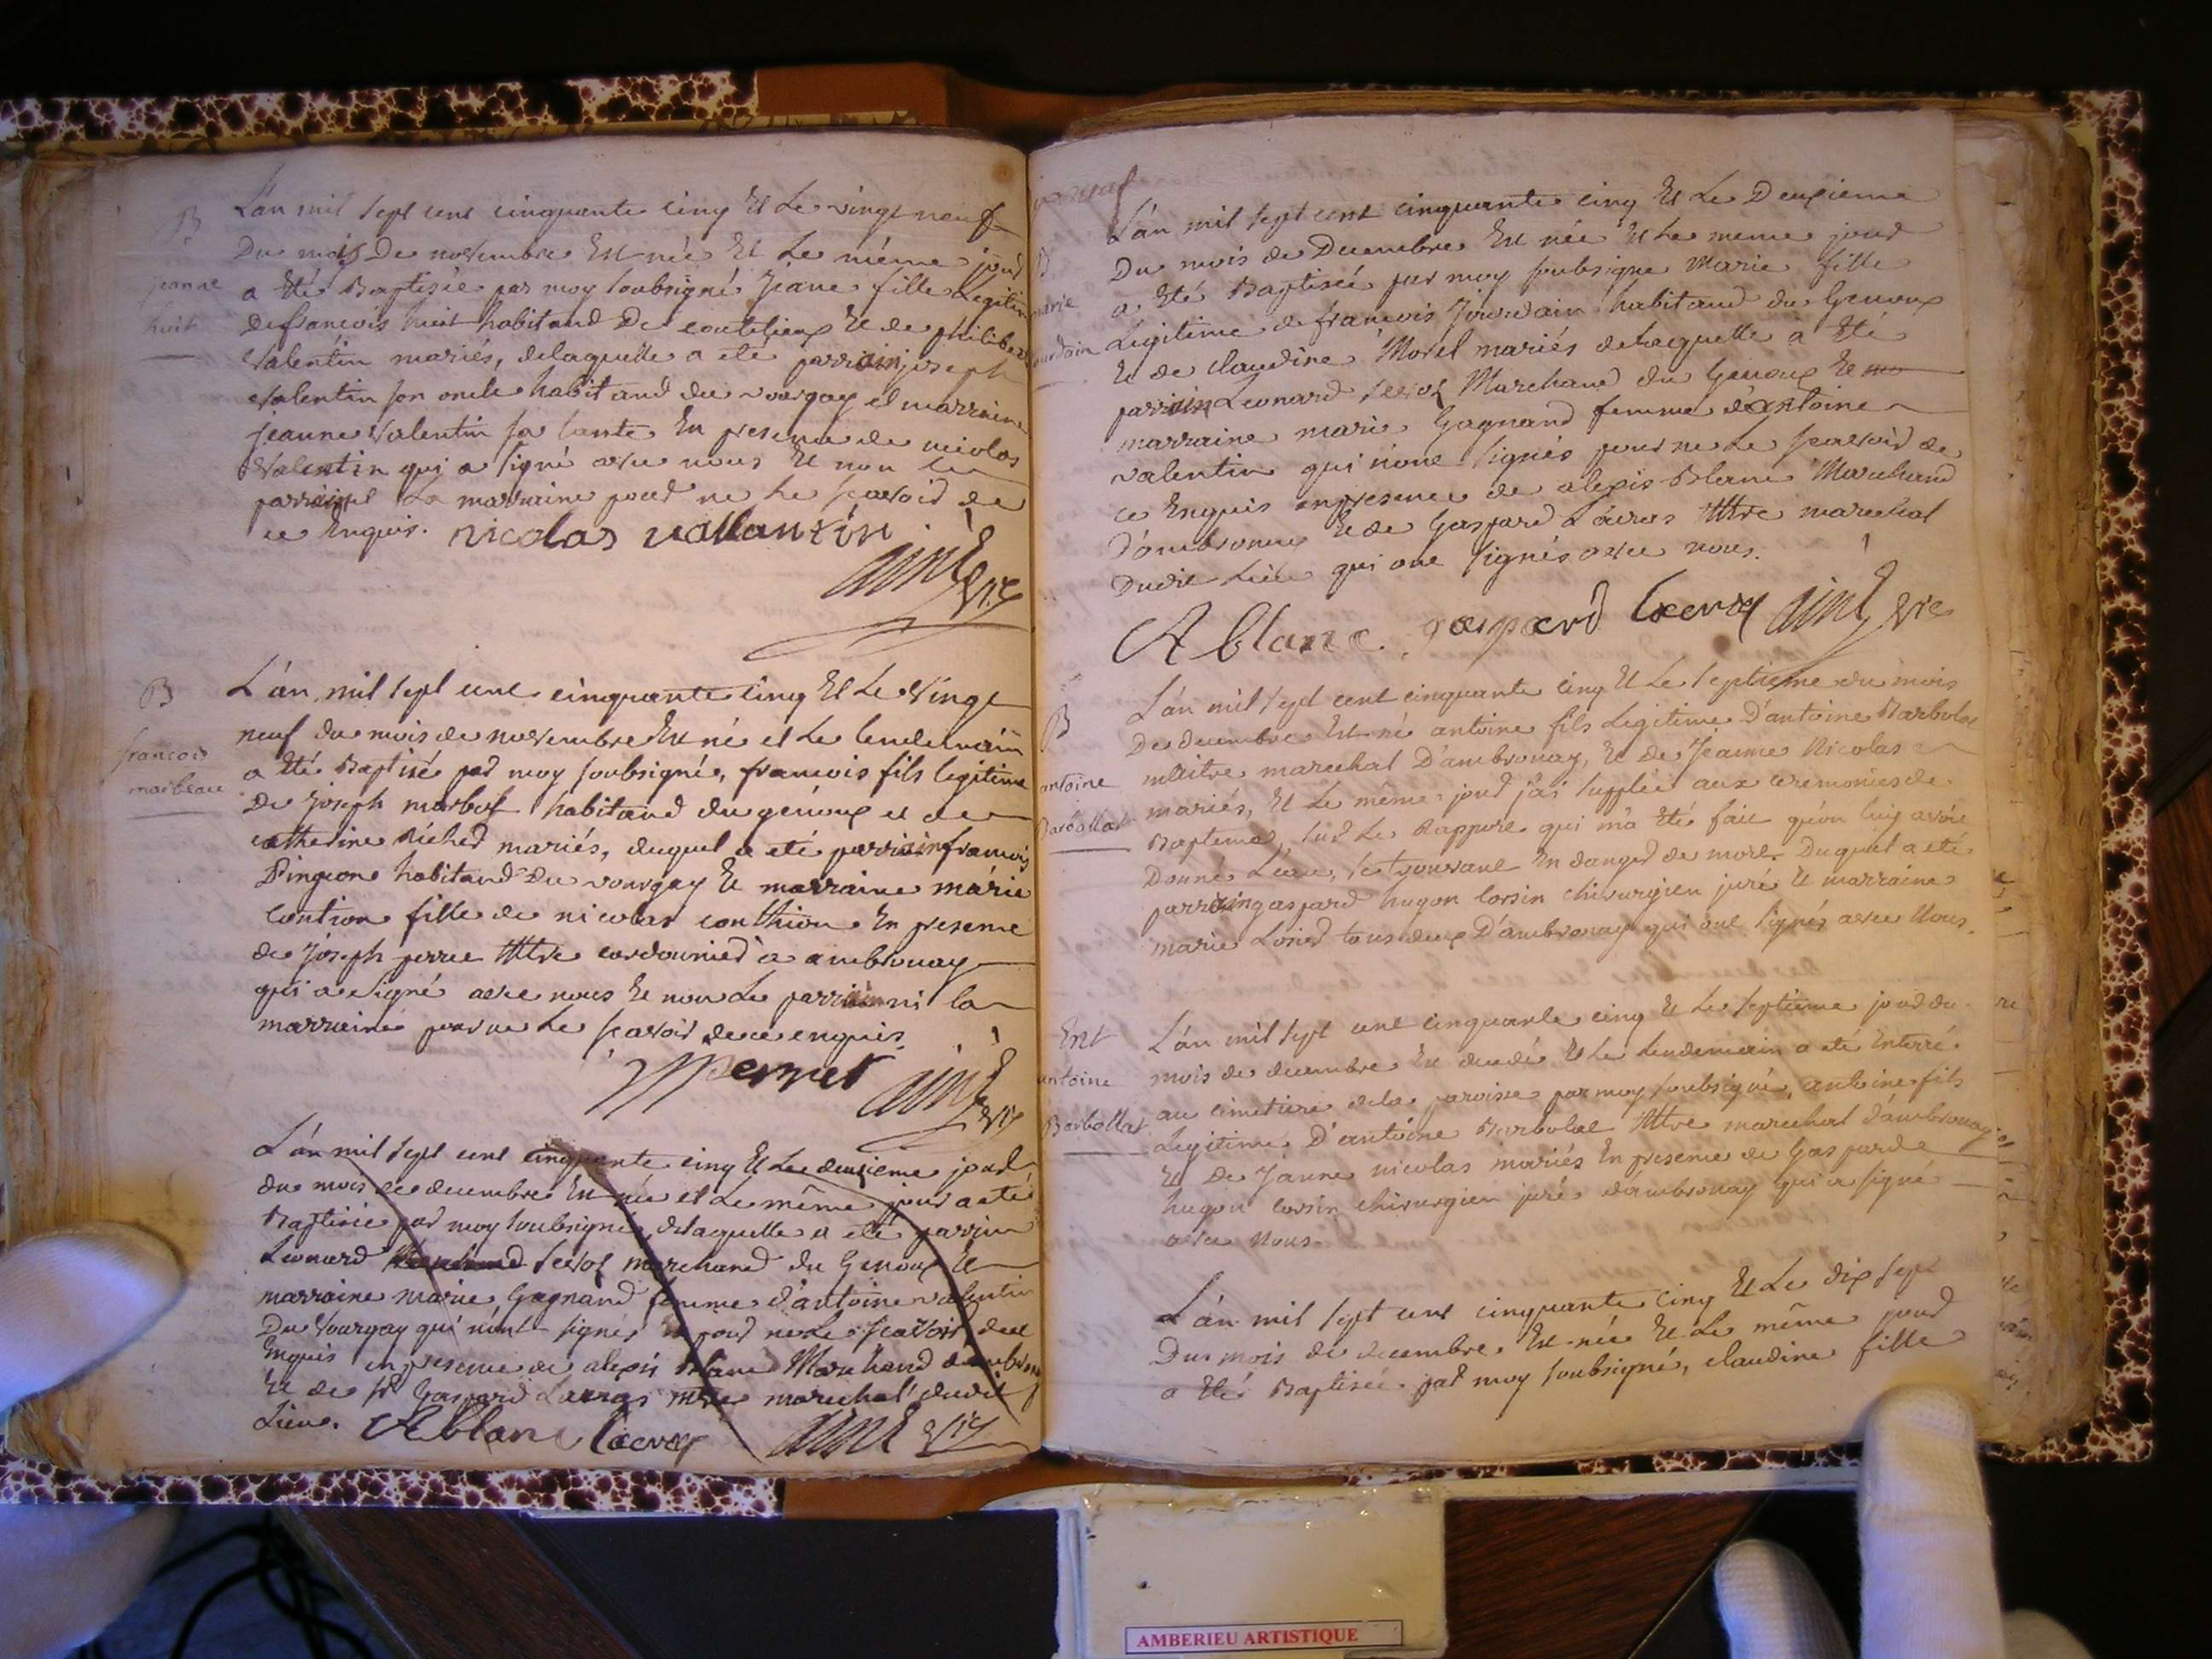 B
jeanne
huit
L'an mil sept cent cinquante cinq Et Le vingt neuf
Du mois De novembre Est née Et Le même jour
a Eté Baptisée par moy soubsigné Jeane fille Legitime
de francois huit habitand De coutelieux Et de philiberte
Valentin mariés, delaquelle a eté parrain joseph
Valentin son oncle habitand du vourgay et marraine
jeanne Valentin sa tante En presence de nicolas
Valentin qui a signé avec nous Et non le
parrain et La marraine pour ne Le scavoir de
ce Enquis. nicolas vallantin
B
francois
marbeau
L'an mil sept cent cinquante cinq Et Le Vingt
neuf du mois de novembre Est né et Le lendemain
a Eté Baptisé par moy soubsigné, francois fils legitime
De joseph marbost habitand du genoux et de
catherine Richer mariés, duquel a eté parrain francois
Pingeone habitand Du vourgay Et marraine marie
Contion fille de nicolas conthion En presence
de joseph perret Mtre cordonnier à ambronay
qui a signé avec nous Et non Le parrain ni la
marraine pour ne Le scavoir de ce enquis.
L'an mil sept cent cinquante cinq Et Le deuxieme jour
du mois de decembre Est née et Le même jour a eté
Baptisée par moy soubsigné, delaquelle a eté parrain
Leonard Marchand marchand du Genoux Et
marraine marie Gagnand femme d'antoine valentin
Du Vourgay qui n'ont signés pour ne Le scavoir de ce
Enquis en presence de alexis Blanc Marchand d'ambronay
Et de Sr Gaspard Lauras Mtre marechal dudit
Lieu. A blanc
B
marie
jourdain
L'an mil sept cent cinquante cinq Et Le Deuxieme
Du mois de Decembre Est née Et Le meme jour
a Eté Baptisée par moy soubsigne Marie fille
Legitime de francois Jourdain habitand du Genoux
Et de claudine Morel mariés delaquelle a Eté
parrain Leonard Marchand du Genoux Et
marraine marie Gagnand femme d'antoine
valentin qui n'ont signés pour ne Le scavoir de
ce Enquis en presence de alexis Blanc Marchand
D'ambronay Et de Gaspard Lauras Mtre marechal
Dudit Lieu qui ont signés avec nous.
A blanc. gaspard
B
antoine
Barbollat
L'an mil sept cent cinquante cinq Et Le septieme du mois
De decembre Est né antoine fils Legitime D'antoine Barbolat
maitre marechal D'ambronay, Et De Jeanne Nicolas
mariés, Et Le même jour j'ai supplée aux ceremonies de
Bapteme, sur Le Rapport qui m'a Eté fait qu'on luy avoit
Donné L'eau, se trouvant En danger de mort. Duquel a eté
parrain gaspard hugon corsin chirurgien juré Et marraine
marie tous deux D'ambronay qui ont signés avec Nous.
Ent
antoine
Barbollat
L'an mil sept cent cinquante cinq Et Le septieme jour du
mois de decembre Est decedé Et Le Lendemain a eté Enterré
au cimetiere dela paroisse par moy soubsigné, antoine fils
Legitime D'antoine Barbolat Mtre marechal d'ambronay
Et De Janne nicolas mariés En presence de Gasparde
hugon corsin chirurgien juré dambronay qui a signé
avec Nous.
L'an mil sept cent cinquante cinq Et Le dix sept
Du mois de decembre Est née Et Le même jour
a Eté Baptisée par moy soubsigné, claudine fille
AMBERIEU ARTISTIQUE